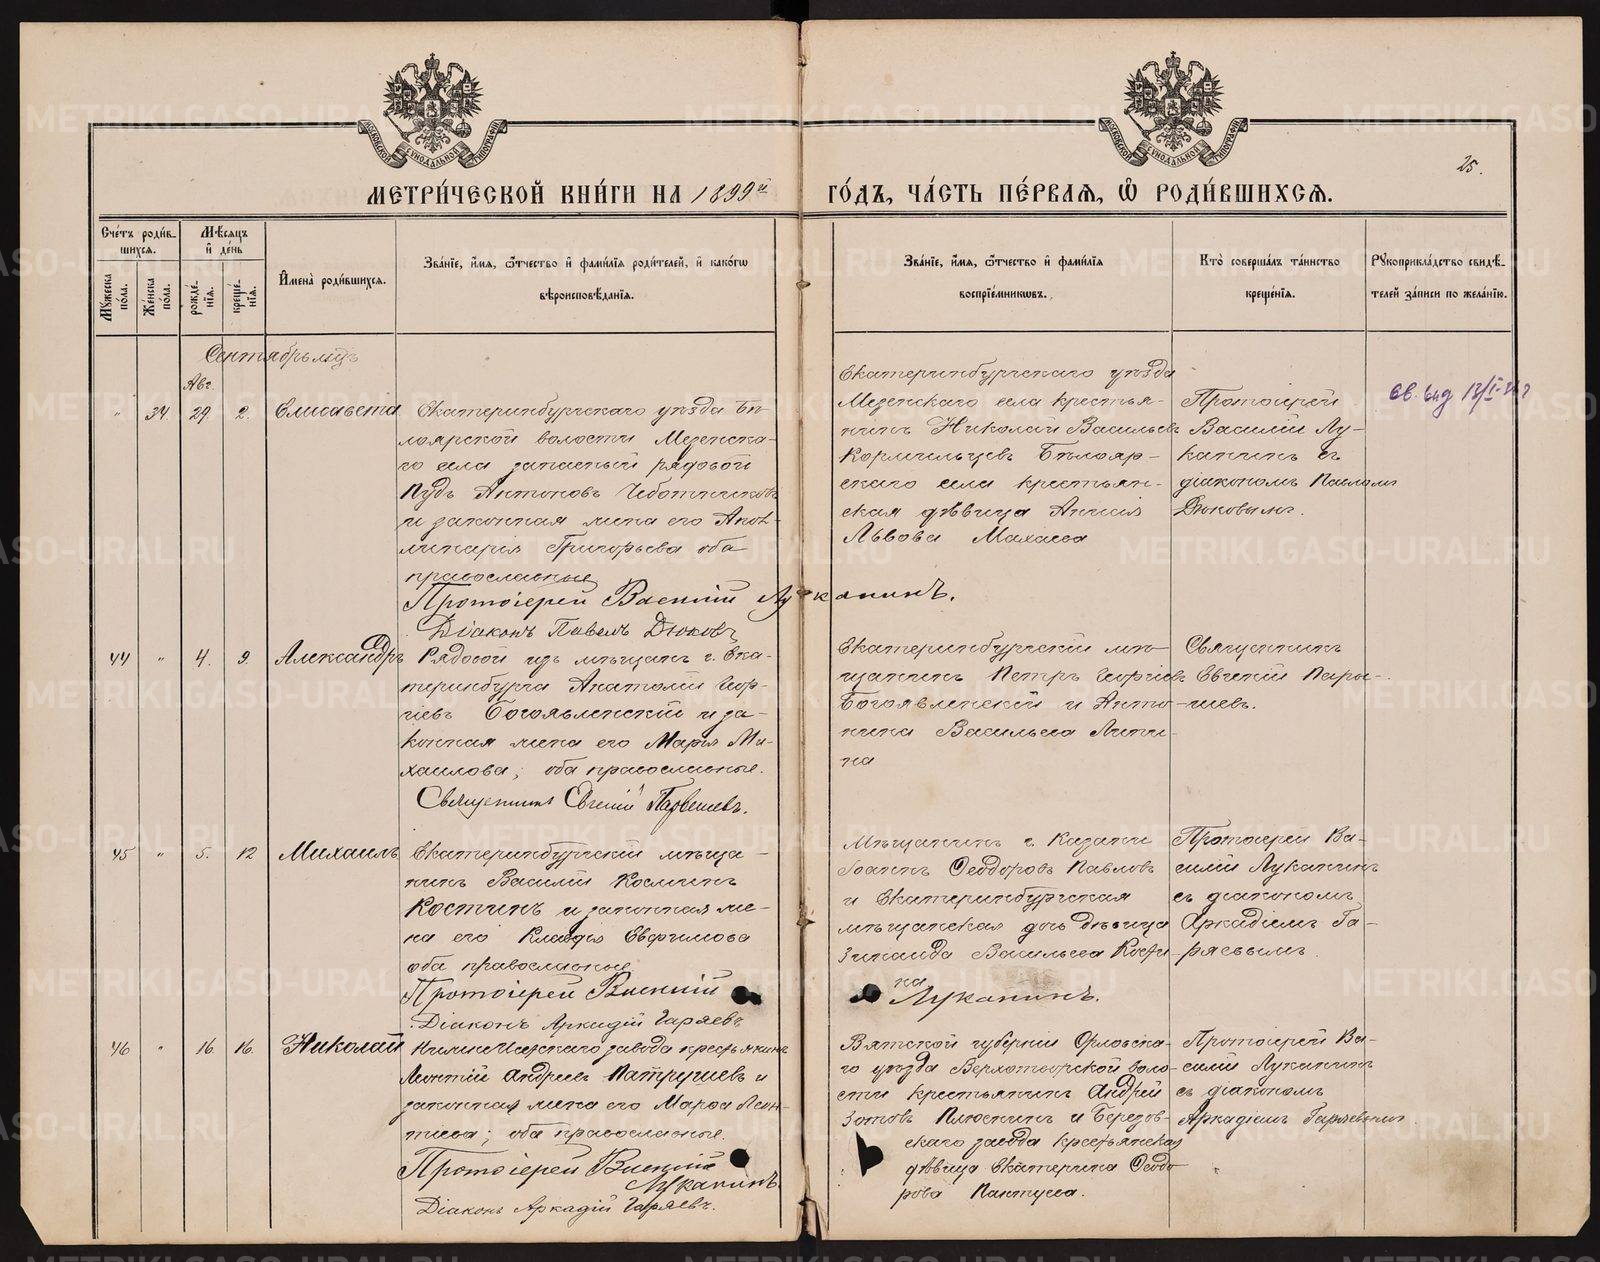 25.
МЕТРИ́ЧЕСКОЙ КНИ́ГИ НА 1899й ГО́ДЪ, ЧА́СТЬ ПЕ́РВАЯ, Ѽ РОДИ́ВШИХСЯ.
Сче́тъ роди́в-
шихся.
Мѣ́сяцъ
и҆ де́нь
Мꙋ́жеска
по́ла.
Же́нска
по́ла.
рожде́-
нїя.
креще́-
нїя.
И҆мена̀ роди́вшихся.
Зва́нїе, и҆́мя, ѻ҆́тчество и҆ фами́лїя роди́телей, и҆ како́гѡ
вѣроисповѣ́данїя.
Зва́нїе, и҆́мя, ѻ҆́тчество и҆ фами́лїя
воспрїе́мникѡвъ.
Кто̀ соверша́лъ та́инство
креще́нїя.
Рꙋкоприкла́дство свидѣ́-
телей за́писи по жела́нїю.
Сентябрь мцъ
Авг.
" 34. 29 2. Елисавета
Екатеринбургскаго уѣзда Бѣ-
лоярской волости Мезенска-
го села запасный рядовой
Пудъ Антоновъ Чеботниковъ
и законная жена его Апол-
линарія Григорьева оба
православные
Протоіерей Василій Луканинъ.
Діаконъ Павелъ Дюковъ
Екатеринбургскаго уѣзда
Мезенскаго села крестья-
нинъ Николай Васильев
Кормильцевъ Бѣлояр-
скаго села крестьян-
ская дѣвица Анисія
Львова Махаева
Протоіерей
Василій Лу-
канинъ съ
діакономъ Павломъ
Дюковымъ.
44 " 4. 9. Александръ
Рядовой изъ мѣщанъ г. Ека-
теринбурга Анатолій Геор-
гіевъ Богоявленскій и за-
конная жена его Марія Ми-
хаилова; оба православные.
Священникъ Евгеній
Екатеринбургскій мѣ-
щанинъ Петръ Георгіевъ
Богоявленскій и Анто-
нина Васильева
на
Священникъ
Евгеній
45 " 5. 12 Михаилъ
Екатеринбургскій мѣща-
нинъ Василій Космичъ
Костинъ и законная же-
на его Клавдія Евфимова
оба православные
Протоіерей Василій Луканинъ.
Діаконъ Аркадій Гаряевъ
Мѣщанинъ г. Казани
Іоаннъ Ѳеодоровъ Павловъ
и Екатеринбургская
мѣщанская дочь дѣвица
Зинаида Васильева Кости-
на
Протоіерей Ва-
силій Луканинъ
съ діакономъ
Аркадіемъ Га-
ряевымъ.
46 " 16. 16. Николай
завода крестьянинъ
Леонтій Андреев Патрушевъ и
законная жена его Марѳа Леон-
тиева; оба православные.
Протоіерей Василій
Луканинъ.
Діаконъ Аркадій Гаряевъ.
Вятской губерніи Орловска-
го уѣзда воло-
сти крестьянинъ Андрей
Зотовъ и Березов-
скаго завода крестьянская
дѣвица Екатерина Ѳеодо-
рова
Протоіерей Ва-
силій Луканинъ
съ діакономъ
Аркадіемъ Гаряевымъ.
METRIKI.GASO-URAL.RU